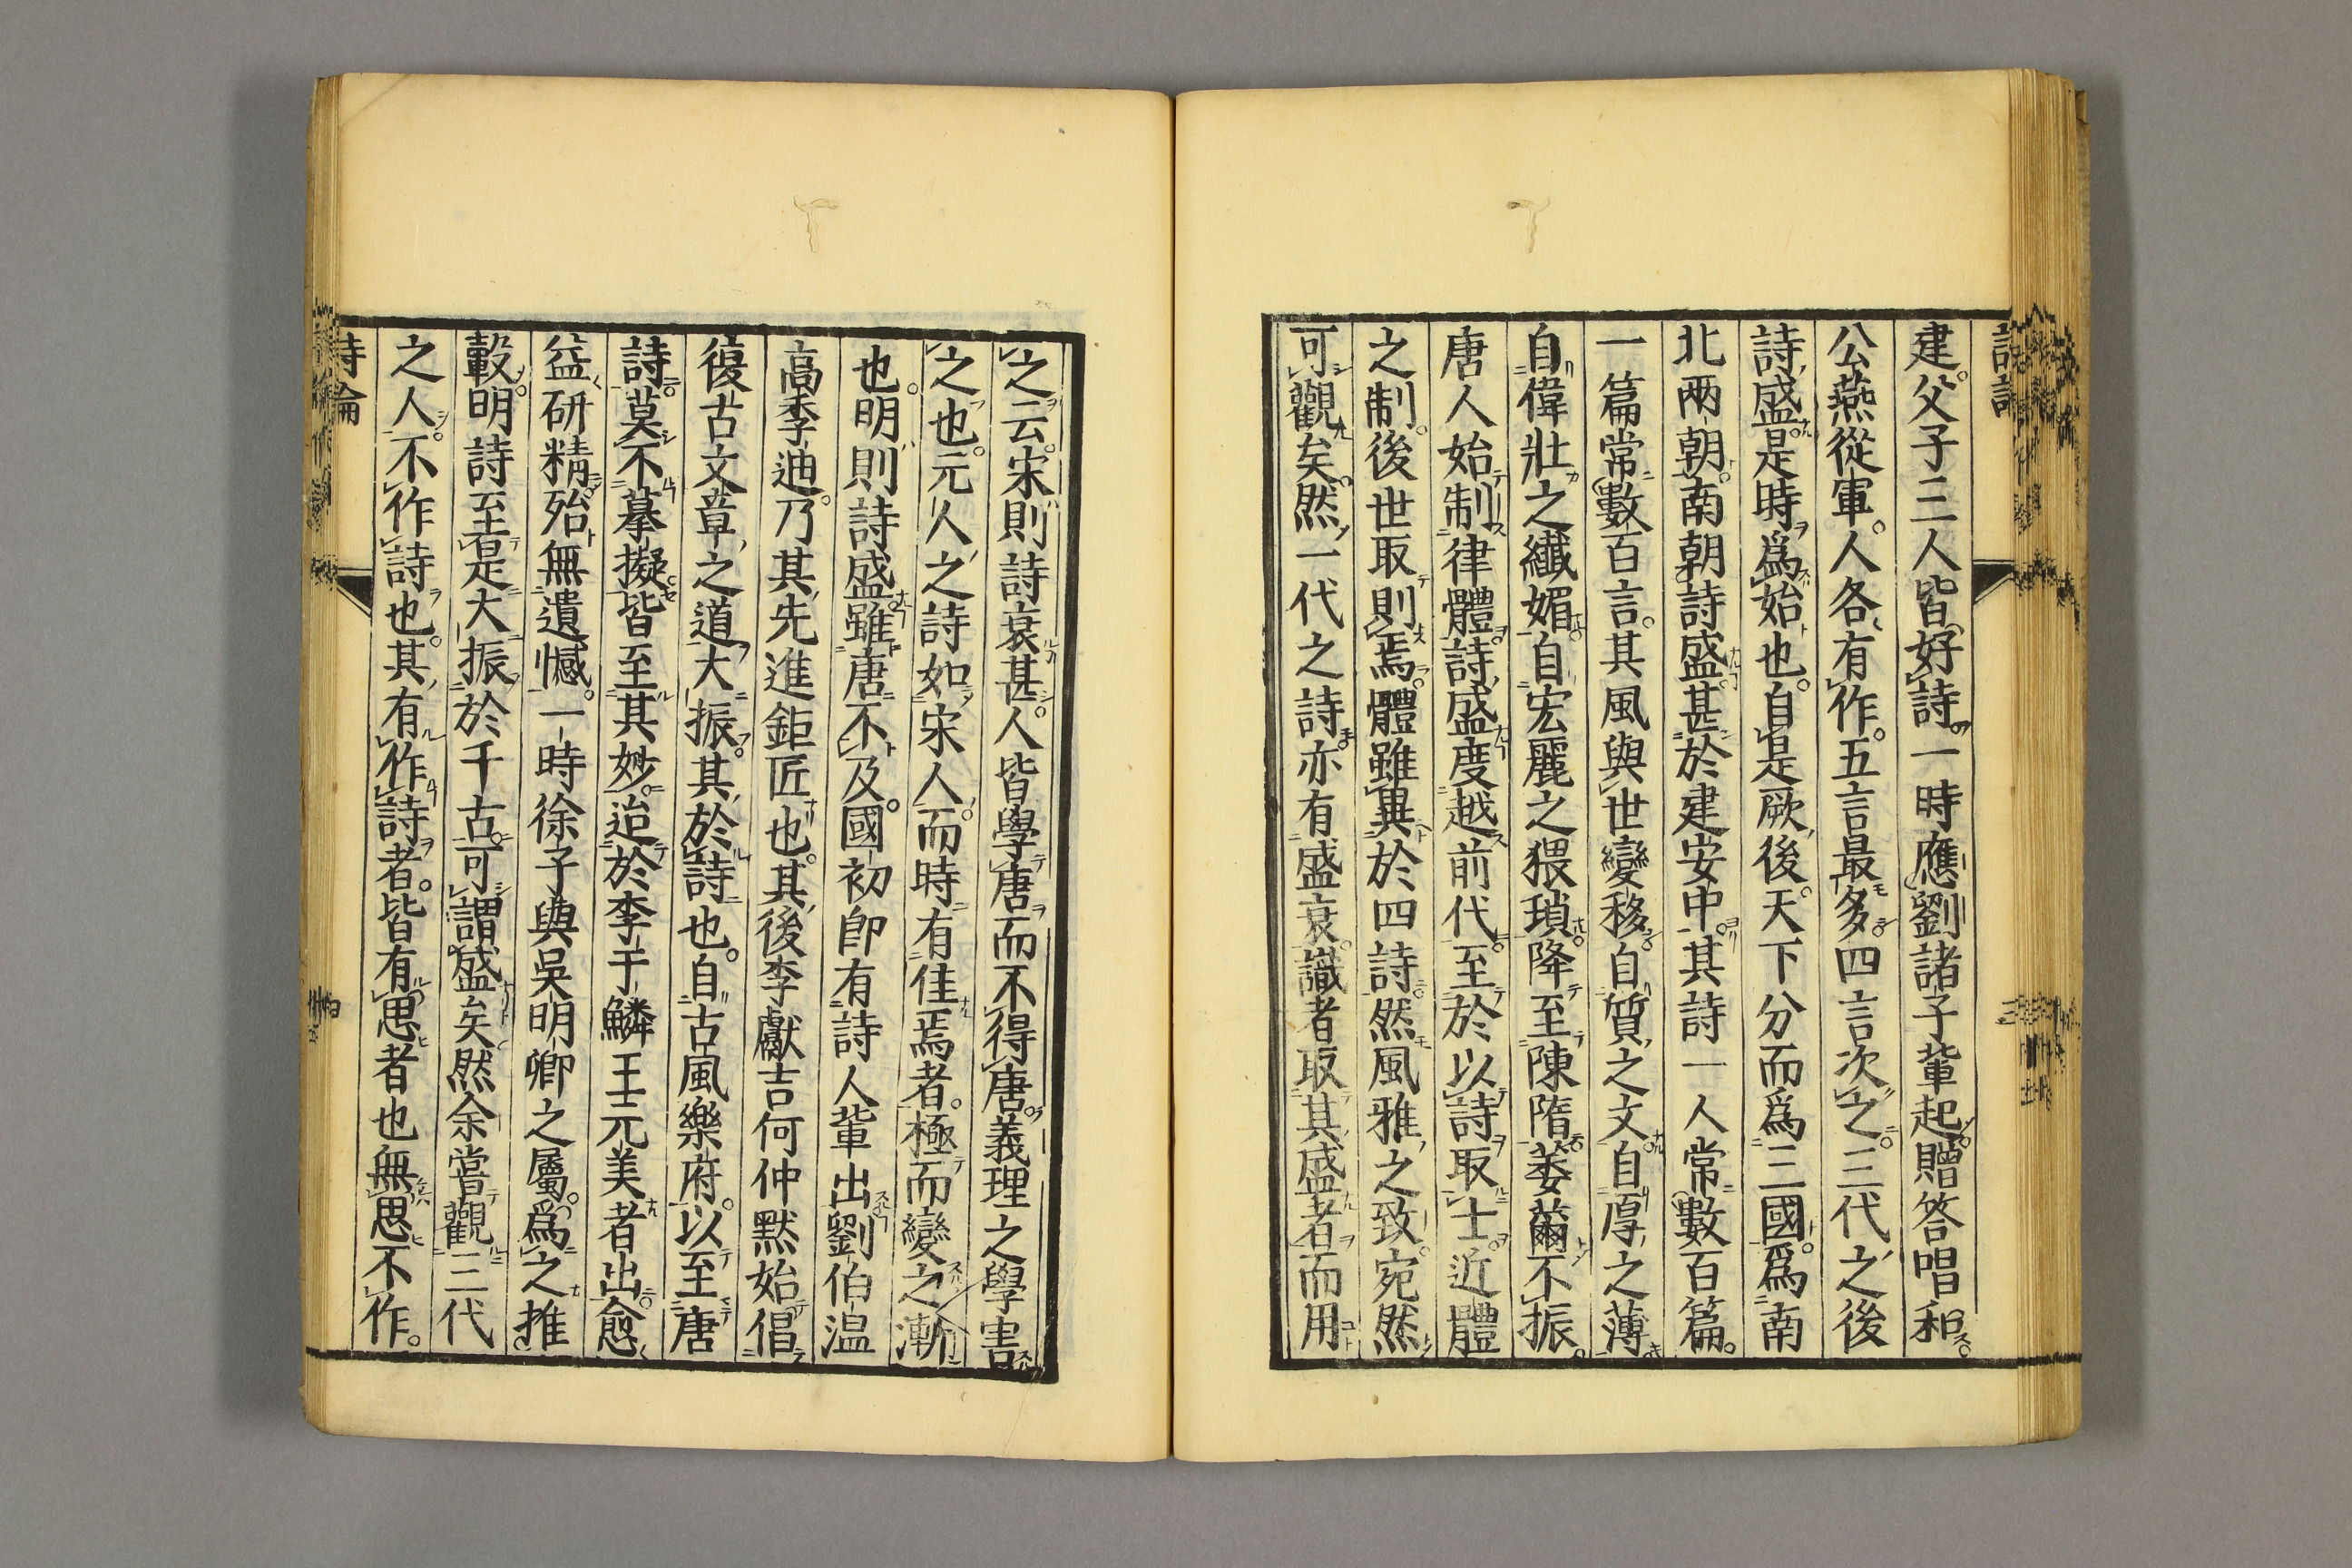 建。父子三人皆好詩。一時應劉諸子輩起。贈答唱和。
公燕從軍。人各有作。五言最多。四言次之。三代之後
詩盛。是時爲始也。自是厥後。天下分而爲三國。爲南
北兩朝。南朝詩盛。甚於建安中。其詩一人常數百篇。
一篇常數百言。其風與世變移。自質之文。自厚之薄。
自偉壯之纖媚。自宏麗之猥瑣。降至陳隋。萎薾不振。
唐人始制律體詩。盛度越前代。至於以詩取士。近體
之制。後世取則焉。體雖異於四詩。然風雅之致。宛然
可觀矣。然一代之詩。亦有盛衰。識者取其盛者而用
之云。宋則詩衰甚。人皆學唐而不得唐。義理之學害
之也。元人之詩如宋人。而時有佳焉者。極而變之漸
也。明則詩盛。雖唐不及。國初即有詩人輩出。劉伯温
高季迪。乃其先進鉅匠也。其後李獻吉何仲默始倡
復古文章之道大振。其於詩也。自古風樂府。以至唐
詩。莫不摹擬。皆至其妙。迨於李于鱗王元美者出。愈
益研精。殆無遺憾。一時徐子與吳明卿之屬。爲之推
轂。明詩至是大振於千古。可謂盛矣。然余嘗觀三代
之人。不作詩也。其有作詩者。皆有思者也。無思不作。
詩論